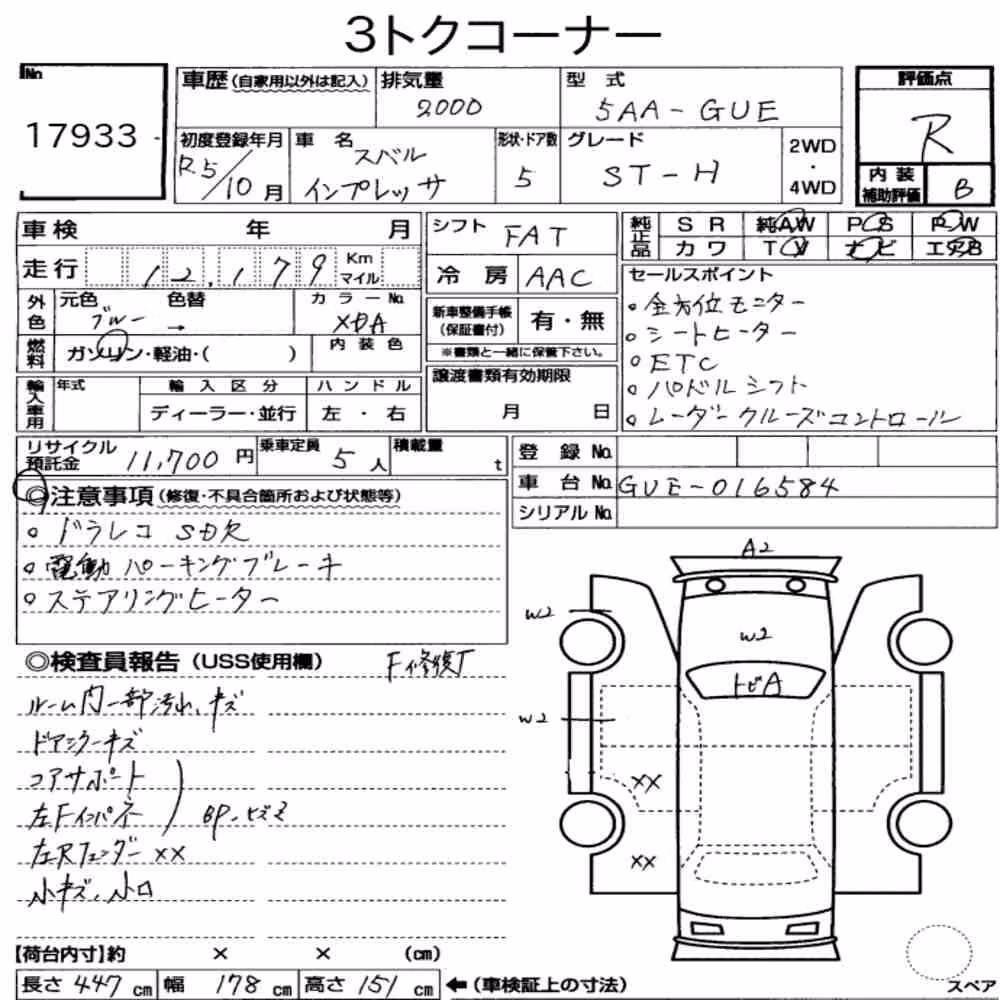 3トクコーナー
No.
17933
車歴(自家用以外は記入)
排気量
2000
型 式
5AA-GUE
評価点
R
初度登録年月
R5/10月
車 名
スバル
インプレッサ
形状・ドア数
5
グレード
ST-H
2WD
・
4WD
内 装
補助評価
B
車検 年 月
シフト
FAT
純正品
S R 純AW P S P W
カ ワ T V ナ ビ エアB
走行 12,179 Km マイル
冷 房 AAC
セールスポイント
外色
元色 色替
ブルー →
カラーNo.
XDA
新車整備手帳
(保証書付)
有・無
※書類と一緒に保管下さい。
○全方位モニター
○シートヒーター
○ETC
○パドルシフト
○レーダークルーズコントロール
燃料
ガソリン・軽油・( )
内 装 色
輸入車用
年式
輸 入 区 分
ディーラー・並行
ハ ン ド ル
左 ・ 右
譲渡書類有効期限
月 日
リサイクル
預託金 11,700 円
乗車定員 5 人
積載量 t
登 録 No.
車 台 No. GUE-016584
シリアル No.
◎注意事項(修復・不具合箇所および状態等)
○ドラレコ SD欠
○電動パーキングブレーキ
○ステアリングヒーター
A2
W2
W2
トビA
W2
XX
XX
◎検査員報告(USS使用欄)
F修復了
ルーム内一部汚れ、キズ
ドアミラーキズ
コアサポート
左Fインパネ
BP、ヒズミ
左Rフェンダー XX
小キズ、小凹
【荷台内寸】約 × × (cm)
長さ 447 cm 幅 178 cm 高さ 151 cm ←(車検証上の寸法)
スペア